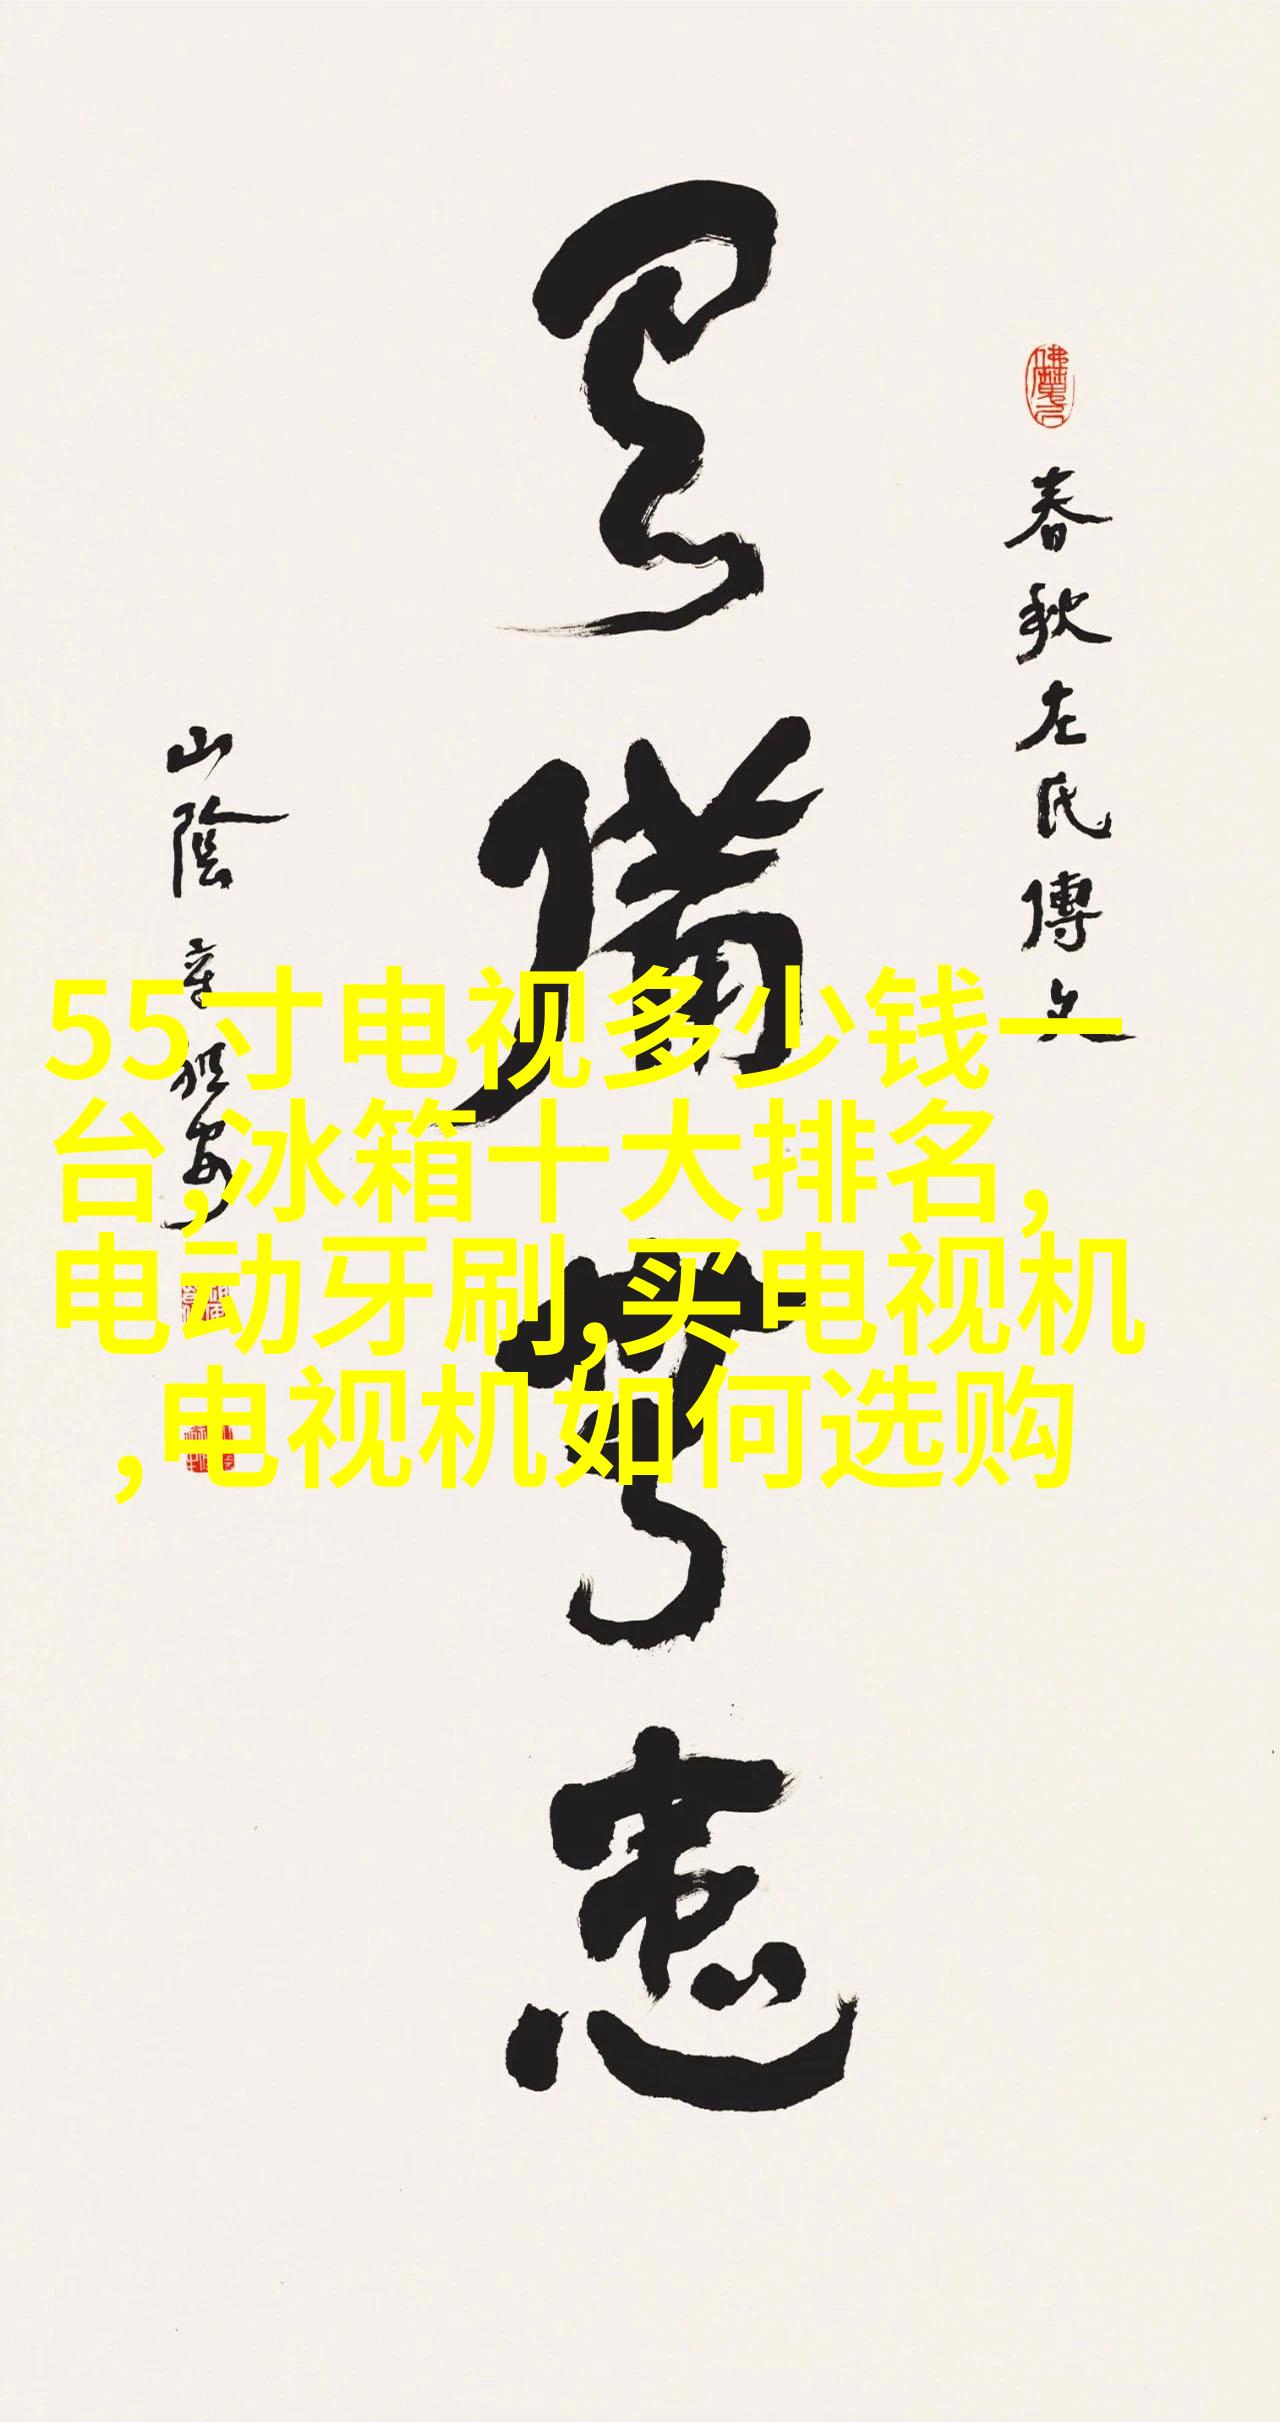 春秋左氏傳文
有備無患
山陰章祖安
55寸电视多少钱一
台,冰箱十大排名,
电动牙刷,买电视机
,电视机如何选购